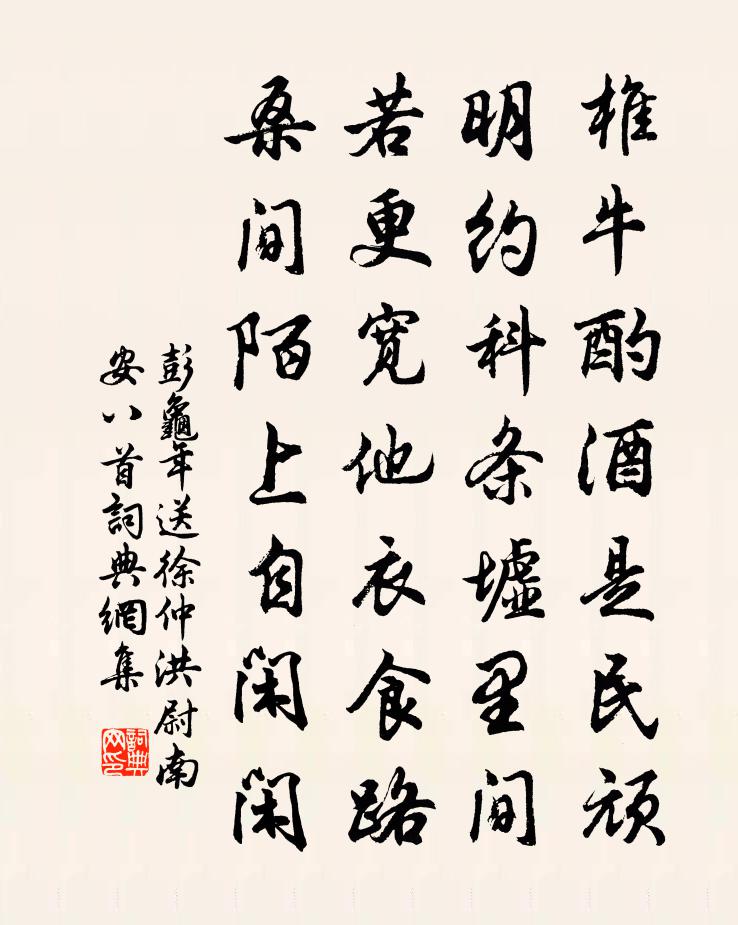 椎牛酌酒是民頑
明約科条墟里間
若更寛他衣食路
桑間陌上自閑閑
彭龜年送徐仲洪尉南
安八首詞典網集
詞典网印